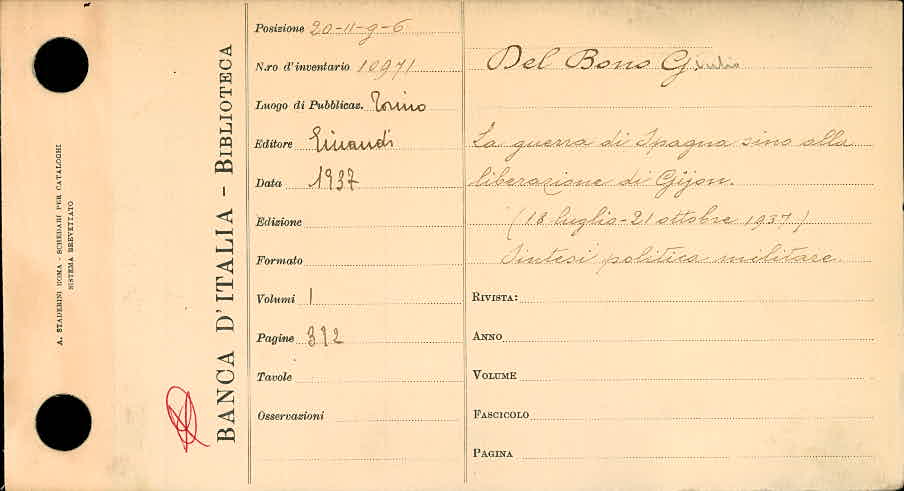 A. STADERINI ROMA - SCHEDARI PER CATALOGHI
SISTEMA BREVETTATO
BANCA D'ITALIA - BIBLIOTECA
Posizione 20-11-g-6
N.ro d'inventario 10971
Luogo di Pubblicaz. Torino
Editore Einaudi
Data 1937
Edizione
Formato
Volumi 1
Pagine 312
Tavole
Osservazioni
Del Bono Giulio
La guerra di Spagna sino alla
liberazione di Gijon.
(18 luglio-21 ottobre 1937)
Sintesi politica militare.
RIVISTA:
ANNO
VOLUME
FASCICOLO
PAGINA